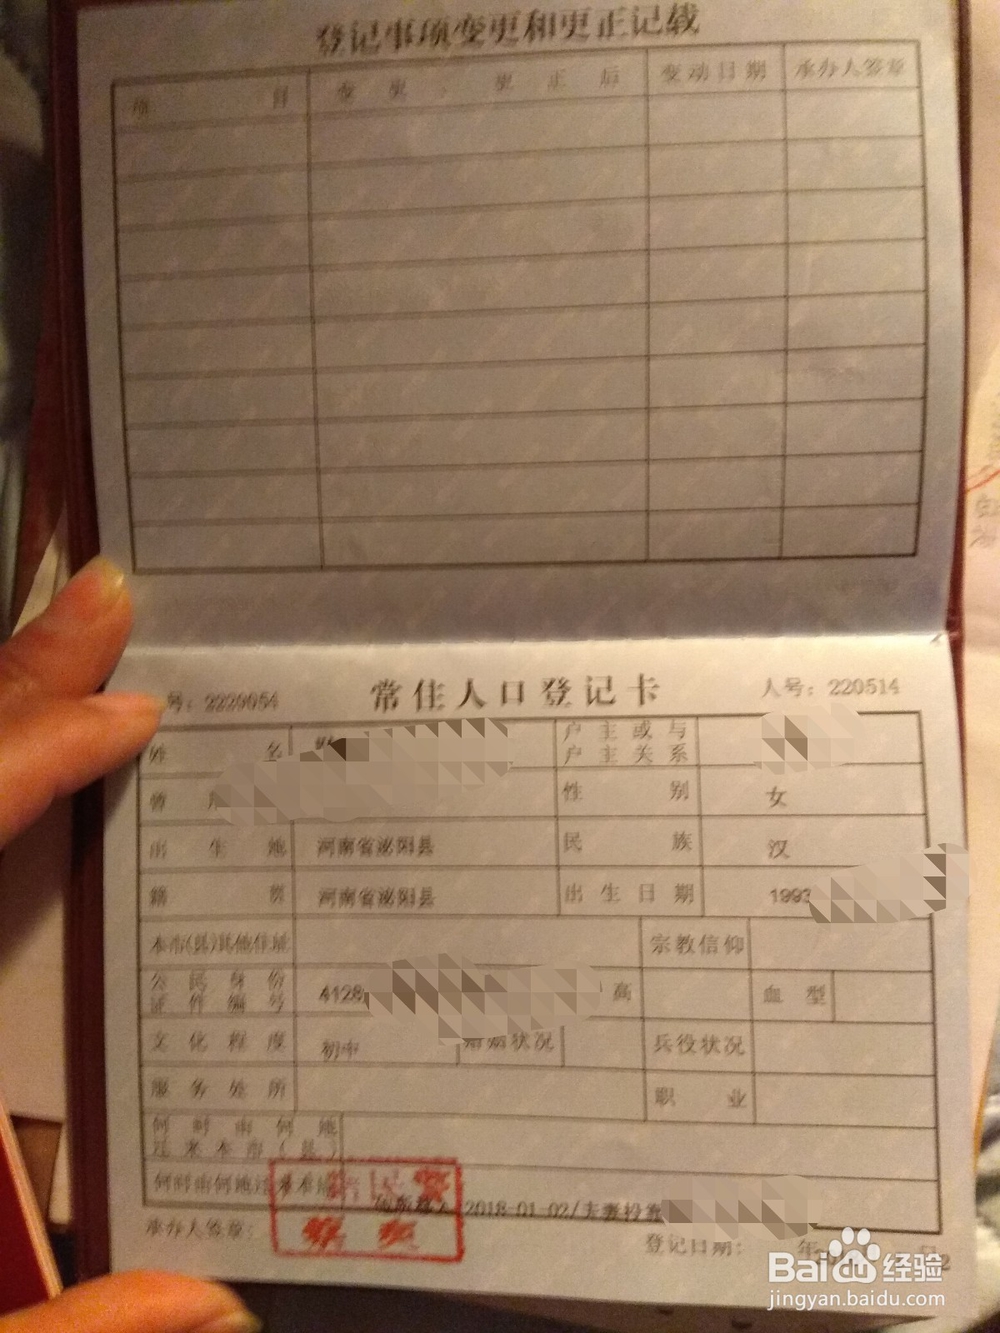 登记事项变更和更正记载
项 目 变 更 、 更 正 后 变动日期 承办人签章
号: 2229054 常住人口登记卡 人号: 220514
姓 名 户主或与户主关系
曾 性 别 女
出 生 地 河南省泌阳县 民 族 汉
籍 贯 河南省泌阳县 出生日期 1993
本市(县)其他住址 宗教信仰
公民身份证件编号 4128 高 血 型
文化程度 初中 婚姻状况 兵役状况
服务处所 职 业
何时由何地迁来本市(县)
何时由何地迁来本
2018-01-02/夫妻投靠
承办人签章: 登记日期: 年
Baidu 经验
jingyan.baidu.com